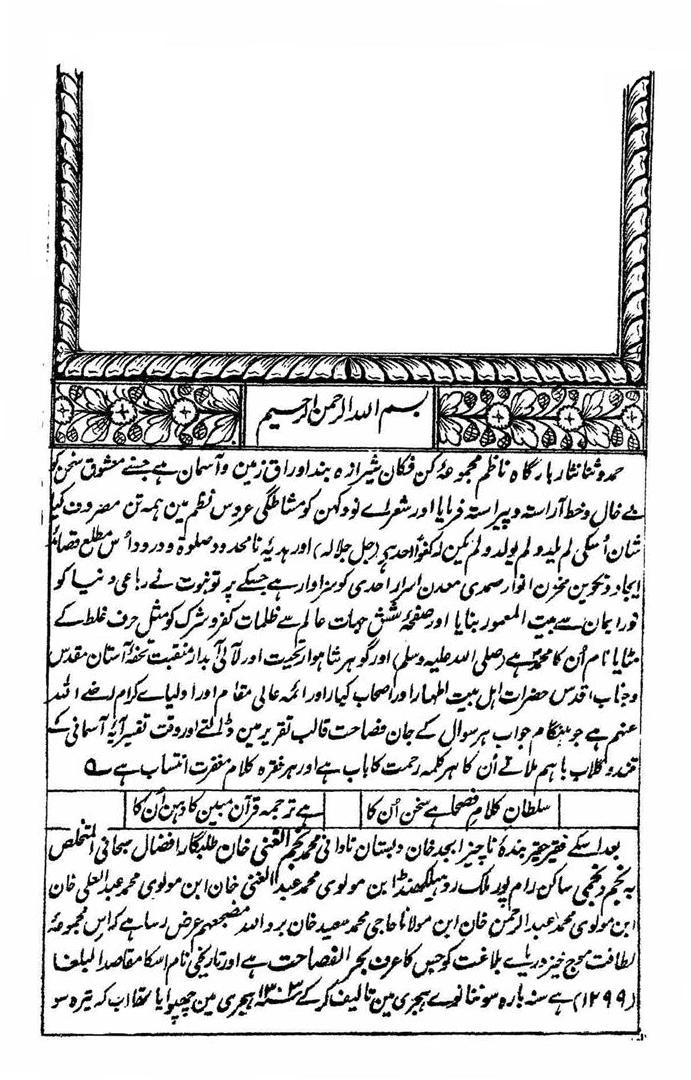 بسم اللہ الرحمن الرحیم
حمد و ثنا نثار بارگاہ ناظم مجموعۂ کن فکان شیرازہ بند اوراق زمین و آسمان ہے جسنے معشوق سخن کو
بے خال و خط آراستہ و پیراستہ فرمایا اور شعراے نو و کہن کو مشاطگی عروس نظم مین ہمہ تن مصروف کیا
شان اُسکی لم یلد و لم یولد و لم یکن لہ کفواً احد ہے (جل جلالہ) اور ہدیۂ نامحدود صلوٰة و درود اُس مطلع قصائد
ایجاد و تکوین مخزن انوار صمدی معدن اسرار احدی کو سزاوار ہے جسکے پرتو نبوت نے رباعی دنیا کو
نور ایمان سے بیت المعمور بنایا اور صفحۂ شش جہات عالم سے ظلمات کفر و شرک کو مثل حرف غلط کے
مٹایا نام اُن کا محمد ہے (صلی اللہ علیہ وسلم) اور گوہر شاہوار تحیت اور لآلی آبدار منقبت تحفۂ آستان مقدس
و جناب اقدس حضرات اہل بیت اطہار اور اصحاب کبار اور ائمہ عالی مقام اور اولیاے کرام رضے اللہ
عنہم ہے جو ہنگام جواب ہر سوال کے جان فصاحت قالب تقریر مین ڈالتے اور وقت تفسیر آیۂ آسمانی کے
قند و گلاب باہم ملاتے اُن کا ہر کلمہ رحمت کا باب ہے اور ہر فقرہ کلام مغفرت انتساب ہے
سلطان کلام فصحا ہے سخن اُن کا ہے ترجمہ قرآن مبین کا دہن اُن کا
بعد اسکے فقیر حقیر بندۂ ناچیز ابجد خان دبستان نادانی محمد نجم الغنی خان طلبگار افضال سبحانی المتخلص
بہ نجم و نجمی ساکن رام پور ملک روہیلکھنڈ ابن مولوی محمد عبد الغنی خان ابن مولوی محمد عبد العلی خان
ابن مولوی محمد عبد الرحمن خان ابن مولانا حاجی محمد سعید خان برد اللہ مضجعہم عرض رسا ہے کہ اس مجموعۂ
لطافت موج خیز دریاے بلاغت کو جس کا عرف بحر الفصاحت ہے اور تاریخی نام اسکا مقاصد البلغا
(۱۲۹۹) ہے سنہ بارہ سو ننانوے ہجری مین تالیف کرکے ۱۳۰۳ ہجری مین چھپوایا تھا اب کہ تیرہ سو